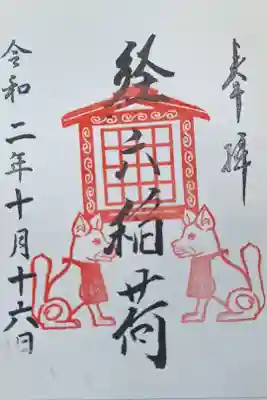 奉拝
経六稲荷
令和二年十月十六日